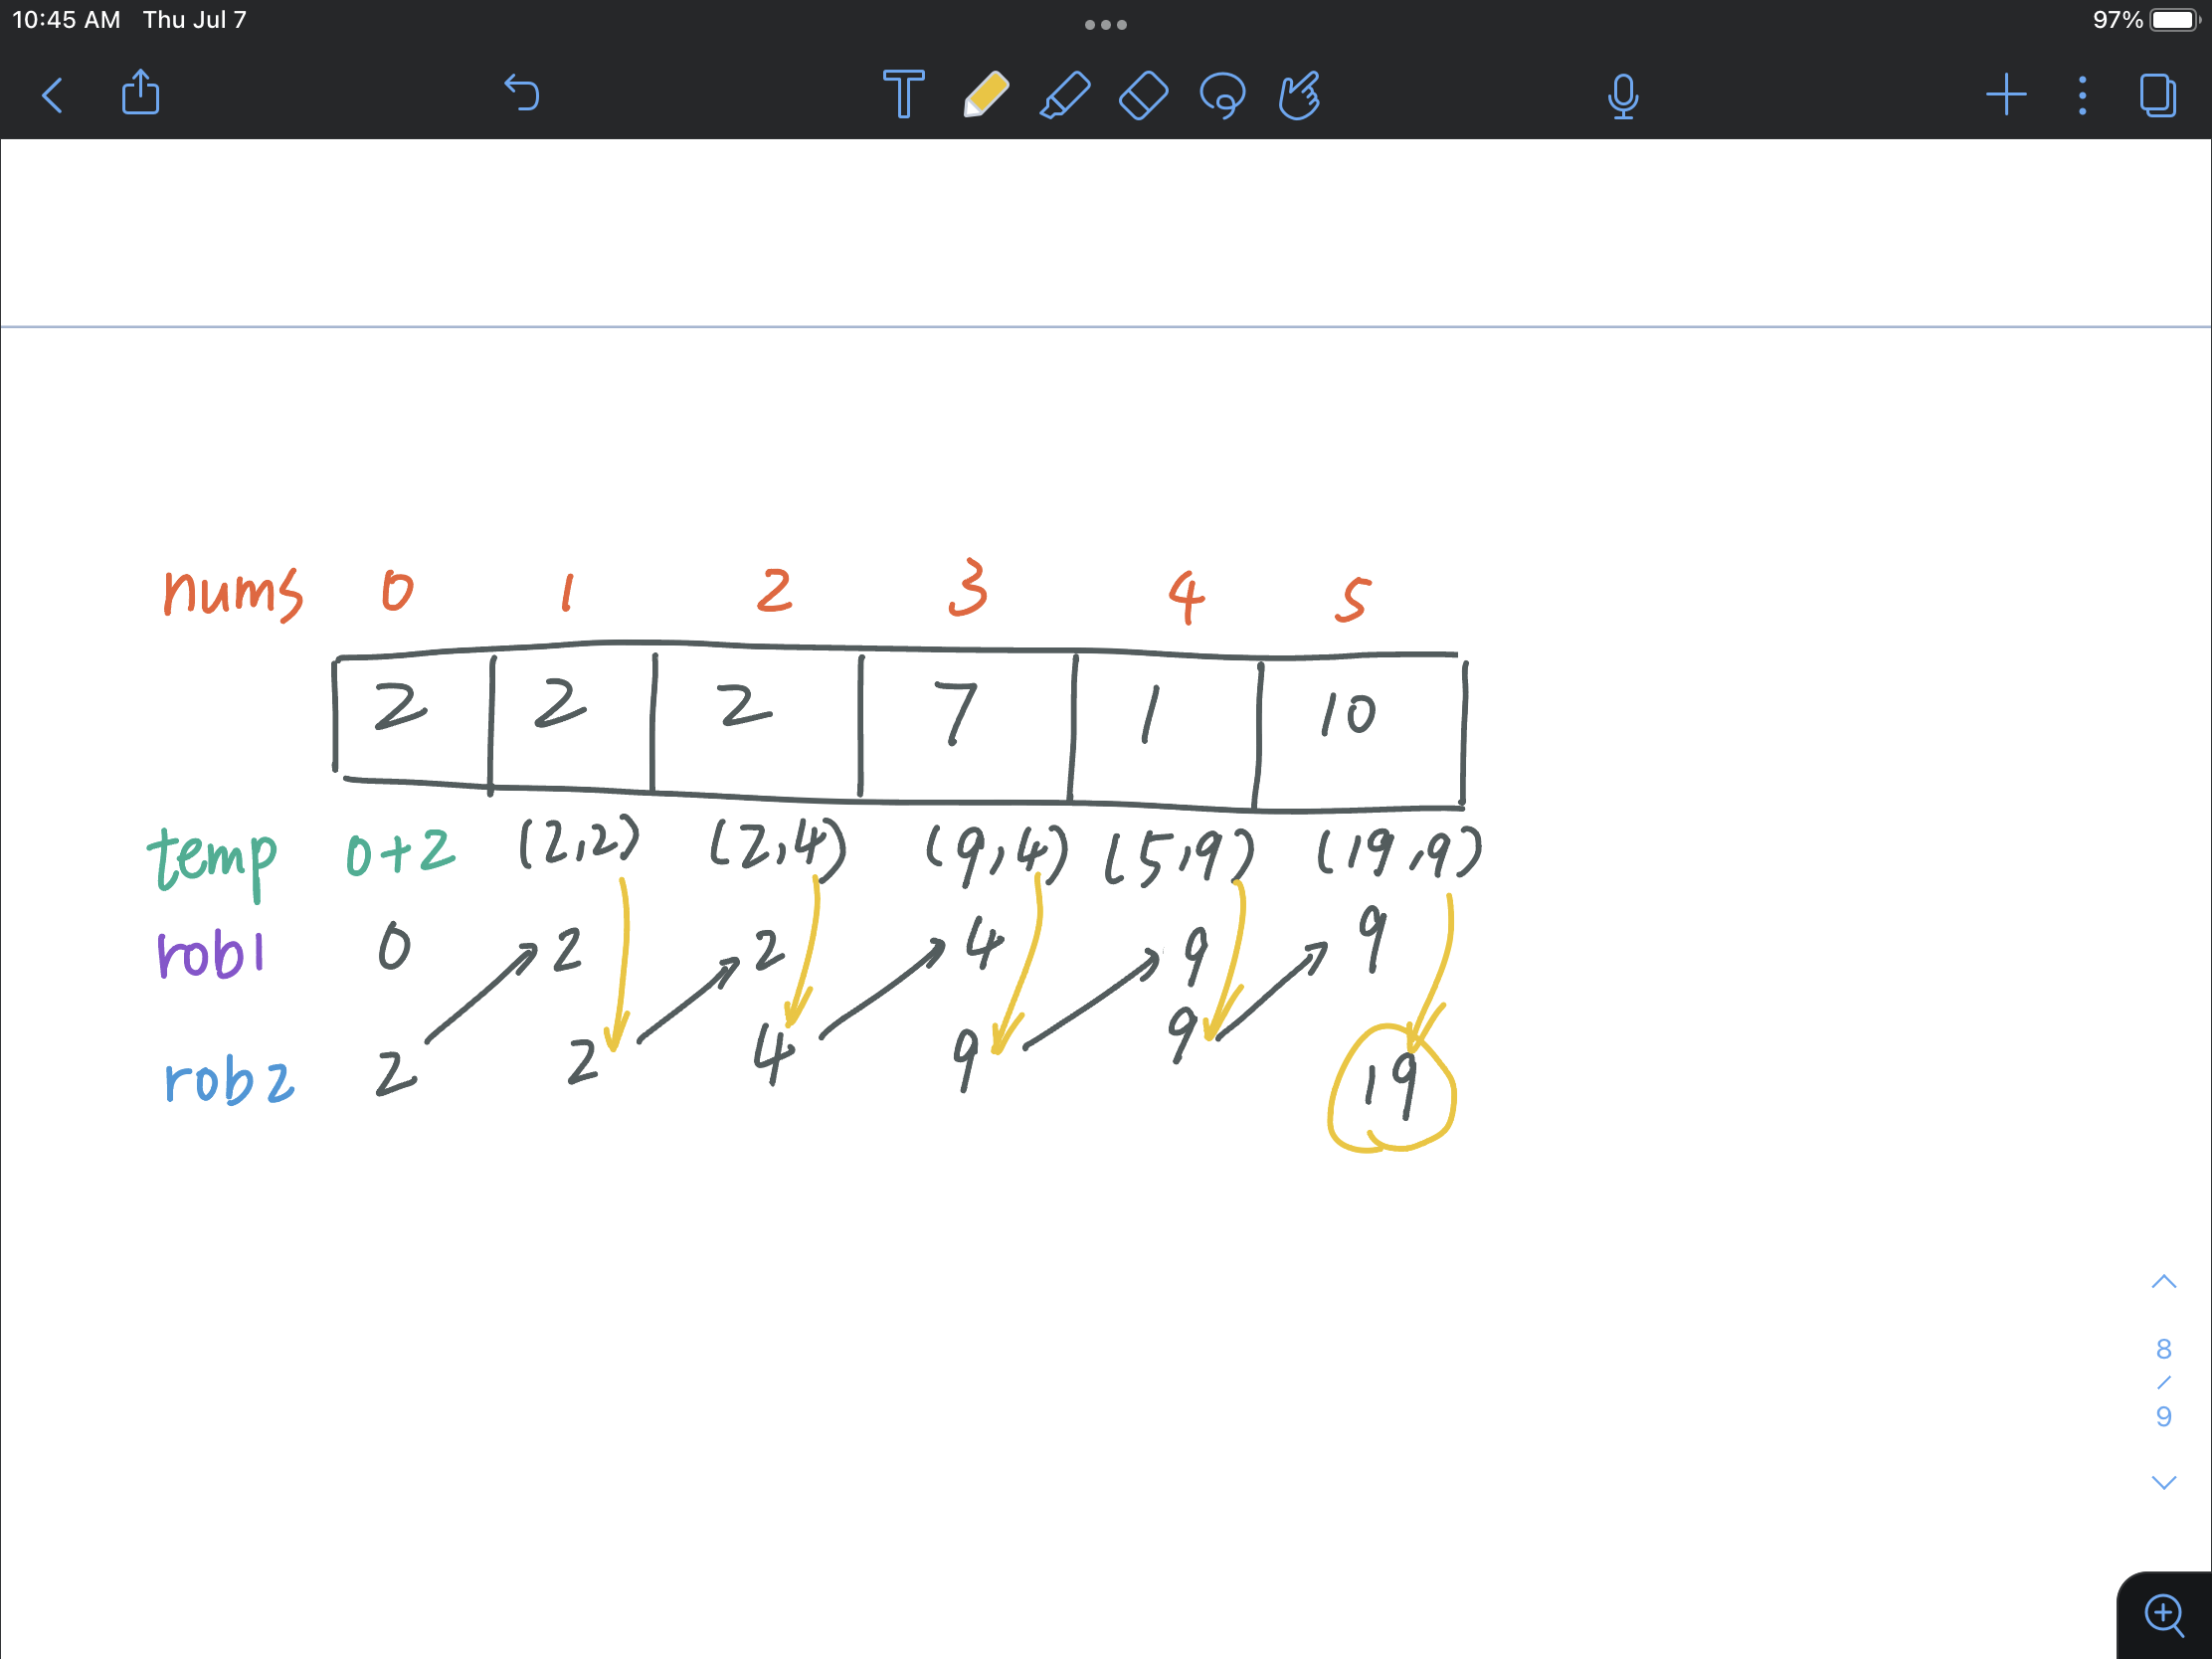 10:45 AM Thu Jul 7 97%
T
nums 0 1 2 3 4 5
2 2 2 7 1 10
temp 0+2 (2,2) (2,4) (9,4) (5,9) (19,9)
rob1 0 2 2 4 9 9
rob2 2 2 4 9 9 19
8
/
9